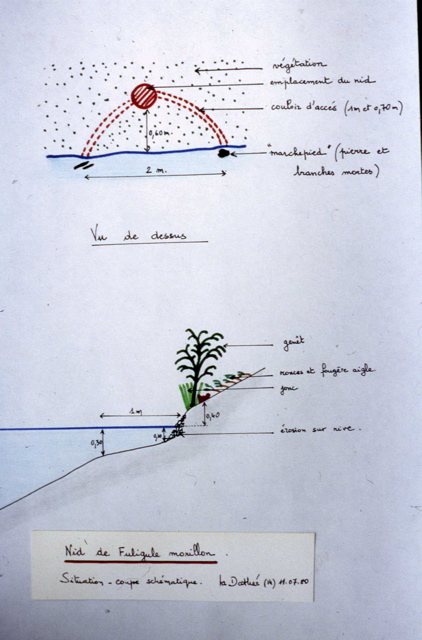 végétation
emplacement du nid
couloir d'accés (1m et 0,70m)
0,60m.
"marchepied" (pierre et
branches mortes)
2 m.
Vu de dessus
genêt
ronces et fougère aigle
jonc
1m
0,40
0,30
érosion sur rive.
Nid de Fuligule morillon.
Situation - coupe schématique. la Dathée (14) 11.07.80